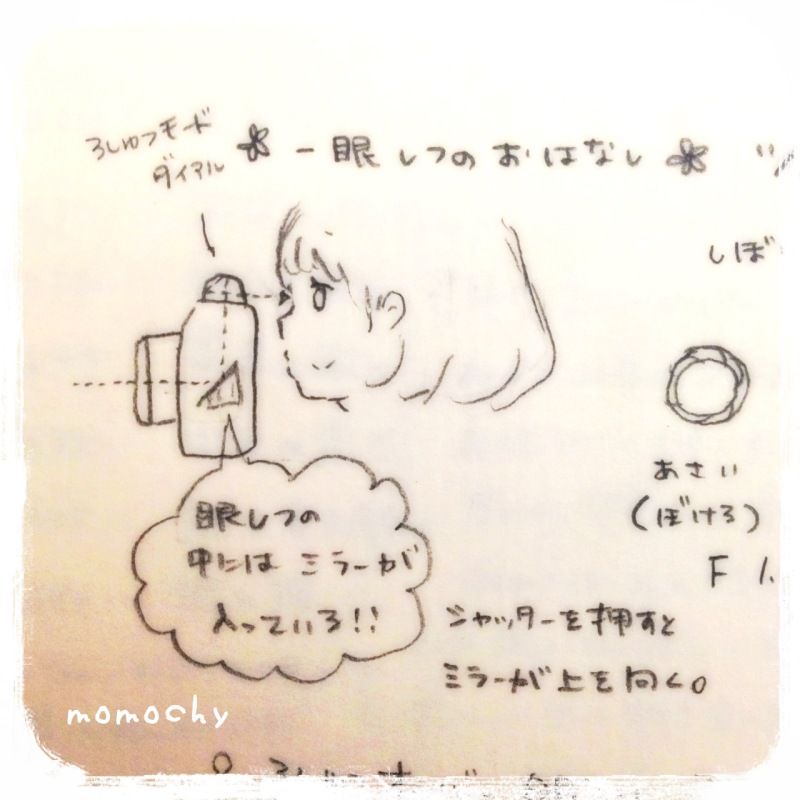 ろしゅつモード
ダイアル
一眼レフのおはなし
しぼ
あさい
(ぼける)
F1.
眼レフの
中には ミラーが
入っている!!
シャッターを押すと
ミラーが上を向く。
momochy